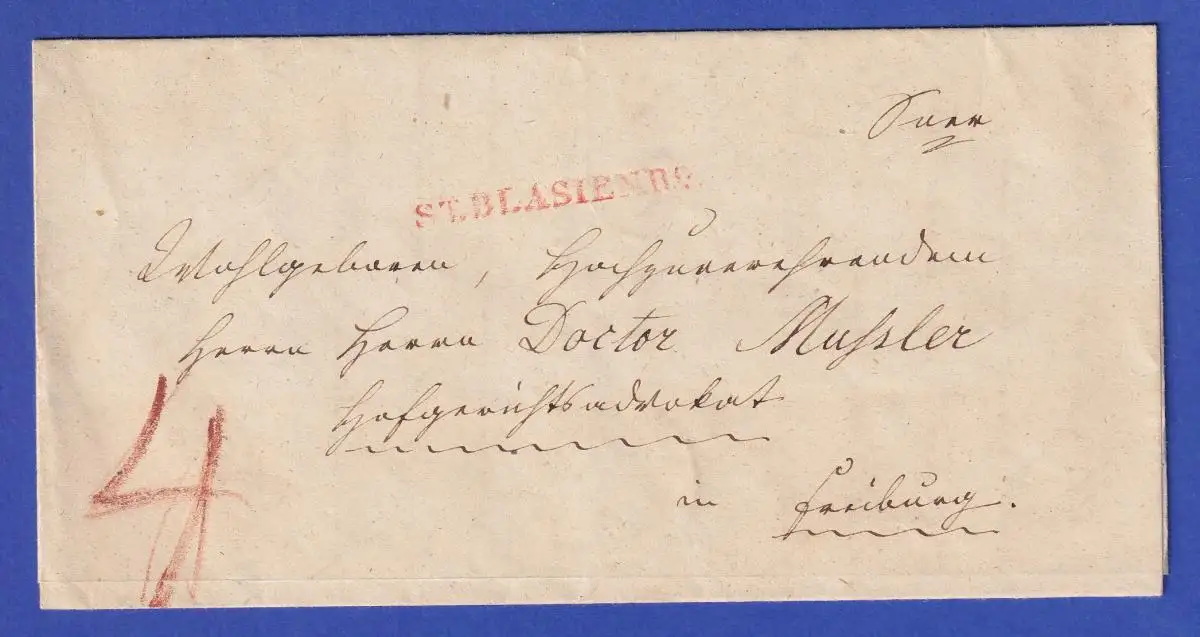 ST.BLASIEN R2.
Wohlgeboren, Hochzuverehrendem
Herrn Herrn Doctor Mußler
Hofgerichtsadvokat
in Freiburg.
4